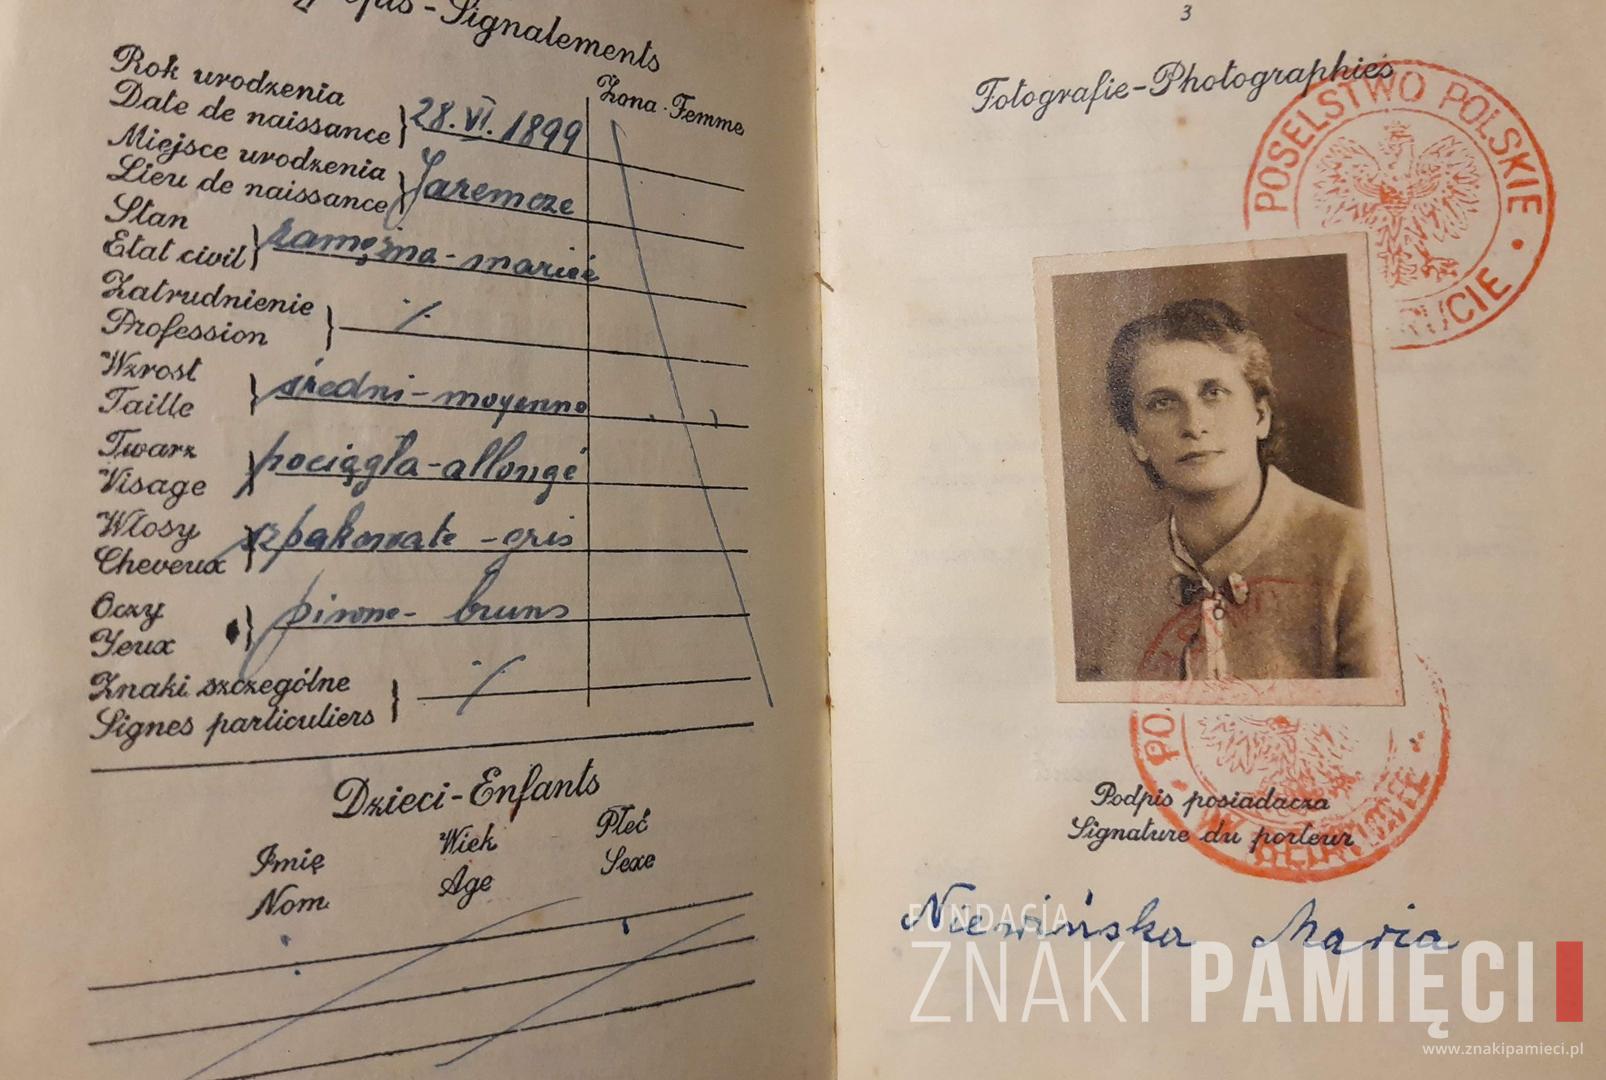 Rysopis - Signalements
Żona - Femme
Rok urodzenia
Date de naissance
28. VI. 1899
Miejsce urodzenia
Lieu de naissance
Jaremcze
Stan
Etat civil
zamężna - mariée
Zatrudnienie
Profession
Wzrost
Taille
średni - moyenne
Twarz
Visage
pociągła - allongé
Włosy
Cheveux
szpakowate - gris
Oczy
Yeux
piwne - bruns
Znaki szczególne
Signes particuliers
Dzieci - Enfants
Imię
Nom
Wiek
Age
Płeć
Sexe
3
Fotografie - Photographies
POSELSTWO POLSKIE
Podpis posiadacza
Signature du porteur
Niewińska Maria
FUNDACJA
ZNAKI PAMIĘCI
www.znakipamieci.pl